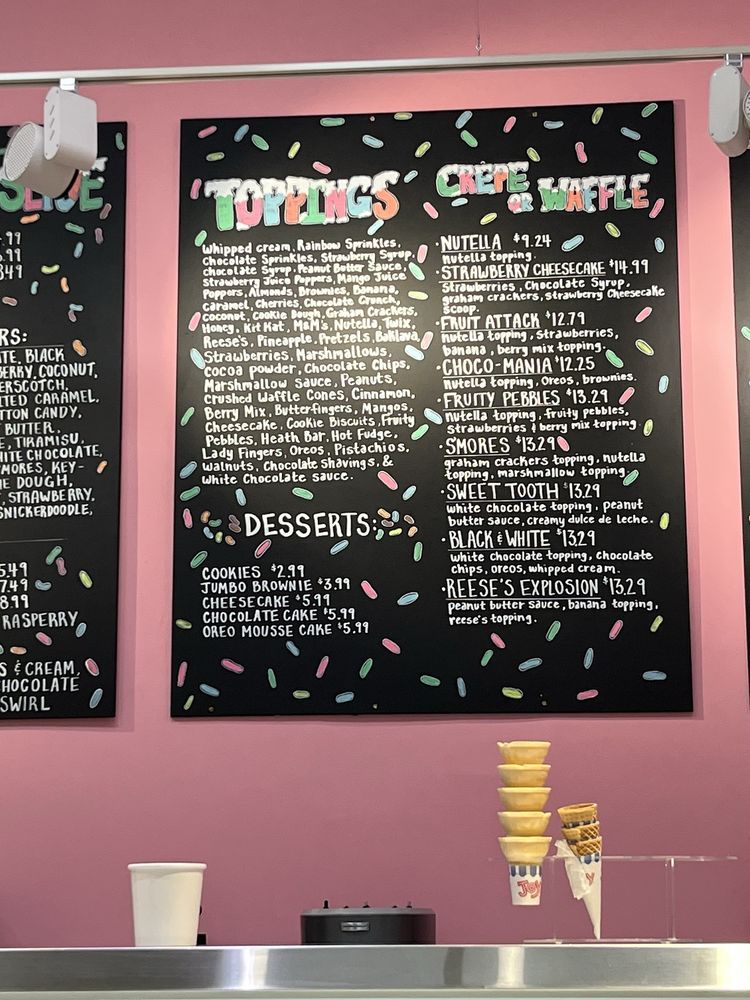 SLUSHIE
.99
.99
.49
RS:
TE, BLACK
BERRY, COCONUT,
ERSCOTCH,
LTED CARAMEL,
TTON CANDY,
BUTTER,
E, TIRAMISU,
HITE CHOCOLATE,
MORES, KEY-
IE DOUGH,
T, STRAWBERRY,
SNICKERDOODLE,
5.49
7.49
8.99
RASPBERRY
S & CREAM,
CHOCOLATE
SWIRL
TOPPINGS
Whipped cream, Rainbow Sprinkles,
Chocolate Sprinkles, Strawberry Syrup,
chocolate Syrup, Peanut Butter Sauce,
Strawberry Juice Poppers, Mango Juice
Poppers, Almonds, Brownies, Banana,
Caramel, Cherries, Chocolate Crunch,
Coconut, Cookie Dough, Graham Crackers,
Honey, Kit Kat, M&M's, Nutella, Twix,
Reese's, Pineapple, Pretzels, Baklava,
Strawberries, Marshmallows,
Cocoa powder, Chocolate Chips,
Marshmallow sauce, Peanuts,
Crushed Waffle Cones, Cinnamon,
Berry Mix, Butterfingers, Mangos,
Cheesecake, Cookie Biscuits, Fruity
Pebbles, Heath Bar, Hot Fudge,
Lady Fingers, Oreos, Pistachios,
Walnuts, Chocolate Shavings, &
White Chocolate sauce.
DESSERTS:
COOKIES $2.99
JUMBO BROWNIE $3.99
CHEESECAKE $5.99
CHOCOLATE CAKE $5.99
OREO MOUSSE CAKE $5.99
CRÊPE
OR WAFFLE
·NUTELLA $9.24
nutella topping.
·STRAWBERRY CHEESECAKE $14.99
Strawberries, Chocolate Syrup,
graham crackers, strawberry Cheesecake
Scoop.
·FRUIT ATTACK $12.79
nutella topping, Strawberries,
banana, berry mix topping.
·CHOCO-MANIA $12.25
nutella topping, Oreos, brownies.
·FRUITY PEBBLES $13.29
nutella topping, fruity pebbles,
strawberries & berry mix topping.
·SMORES $13.29
graham crackers topping, nutella
topping, marshmallow topping.
·SWEET TOOTH $13.29
white chocolate topping, peanut
butter sauce, creamy dulce de leche.
·BLACK & WHITE $13.29
White Chocolate topping, chocolate
chips, oreos, whipped cream.
·REESE'S EXPLOSION $13.29
peanut butter sauce, banana topping,
reese's topping.
JOY
Y